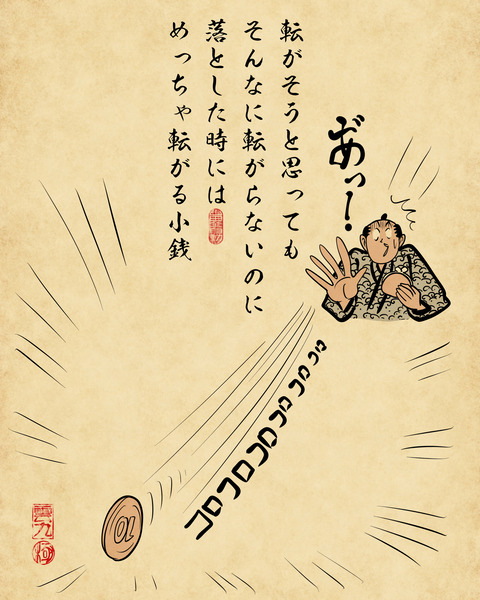 転がそうと思っても
そんなに転がらないのに
落とした時には
めっちゃ転がる小銭
あ゛っー!
コロコロコロコロコロコロ
10